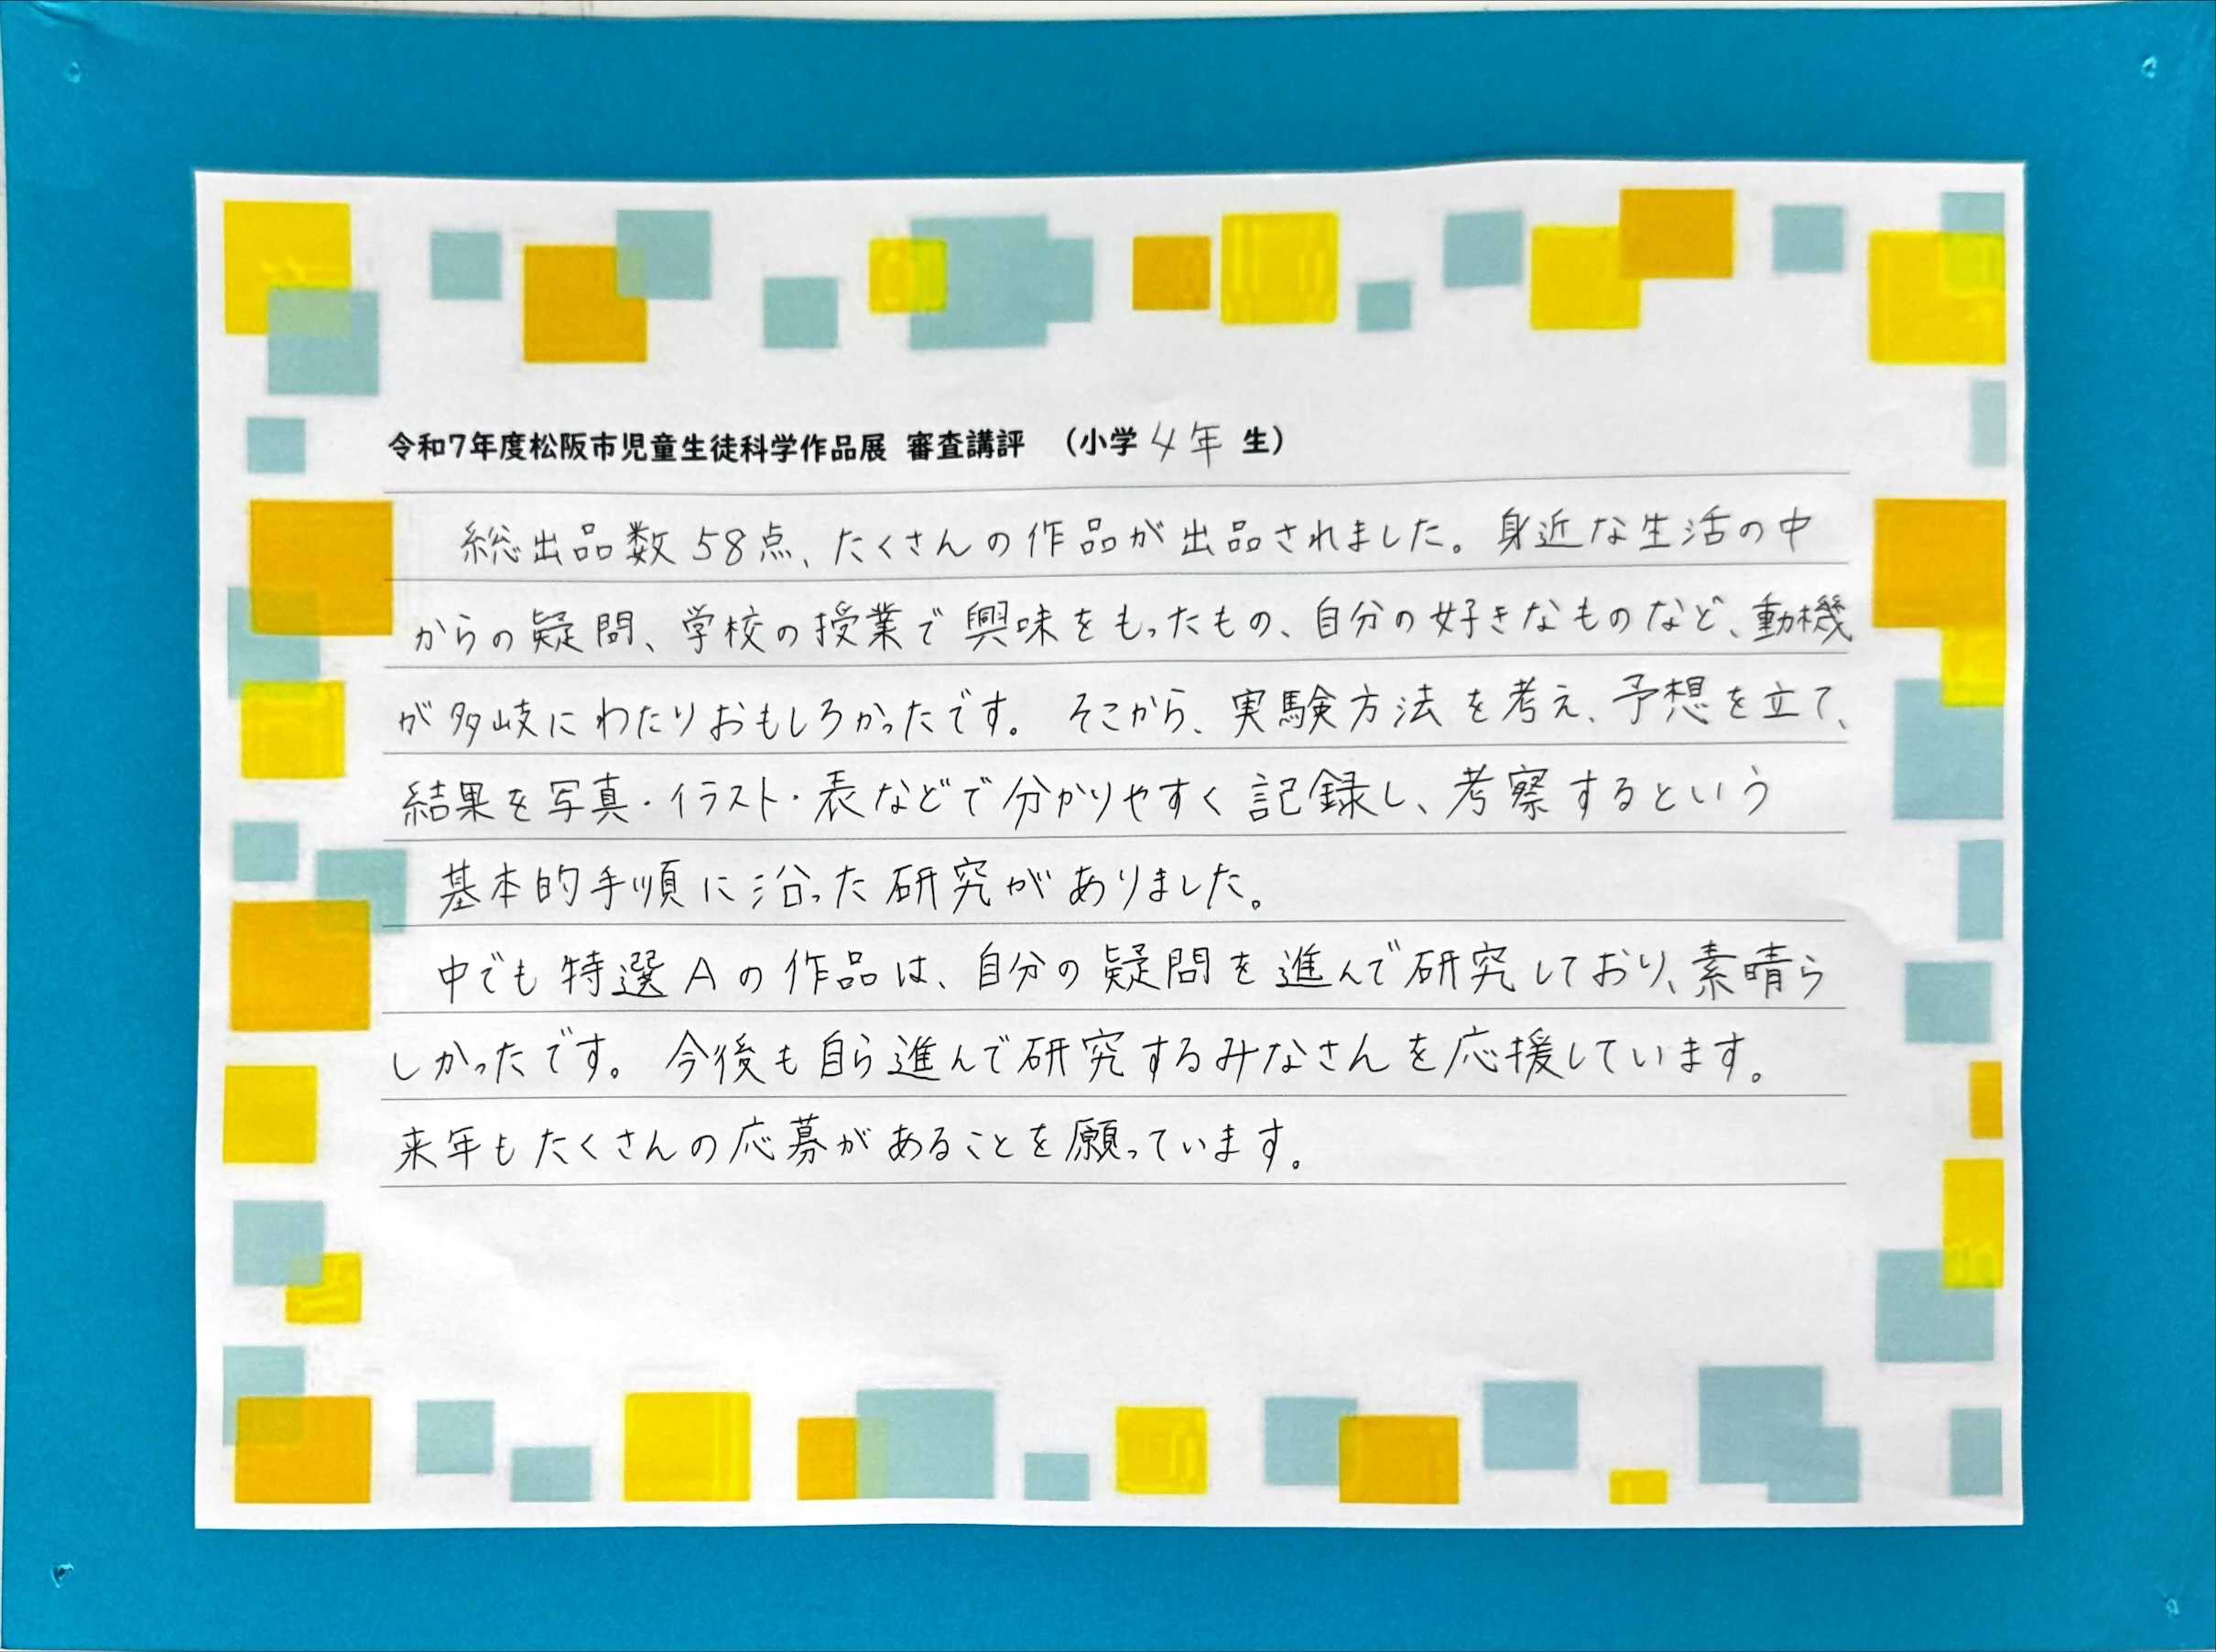 令和7年度松阪市児童生徒科学作品展 審査講評 （小学4年生）
総出品数58点、たくさんの作品が出品されました。身近な生活の中
からの疑問、学校の授業で興味をもったもの、自分の好きなものなど、動機
が多岐にわたりおもしろかったです。そこから、実験方法を考え、予想を立て、
結果を写真・イラスト・表などで分かりやすく記録し、考察するという
基本的手順に沿った研究がありました。
中でも特選Aの作品は、自分の疑問を進んで研究しており、素晴ら
しかったです。今後も自ら進んで研究するみなさんを応援しています。
来年もたくさんの応募があることを願っています。